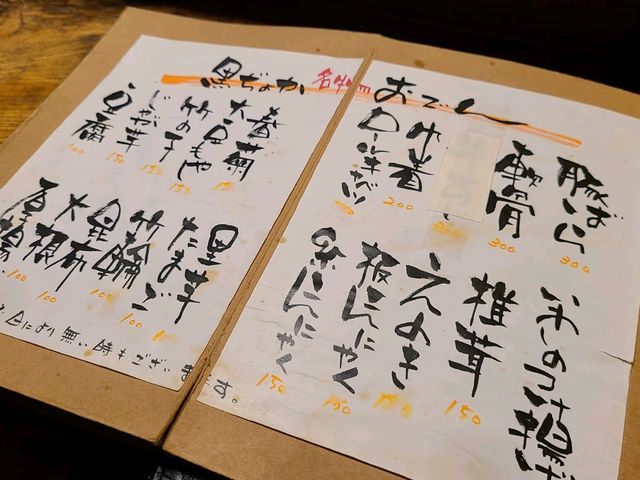 黒ぢょか 名物 おでん
豚ばら 300
軟骨 300
巾着 200
ロールキャベツ
いわしのつけ揚げ
椎茸 150
えのき 150
板こんにゃく 150
糸こんにゃく 150
春菊
大豆もやし
竹の子 150
じゃが芋 150
豆腐 100
里芋
たまご
竹輪 100
昆布 100
大根 100
厚揚 100
日により無い時もございます。